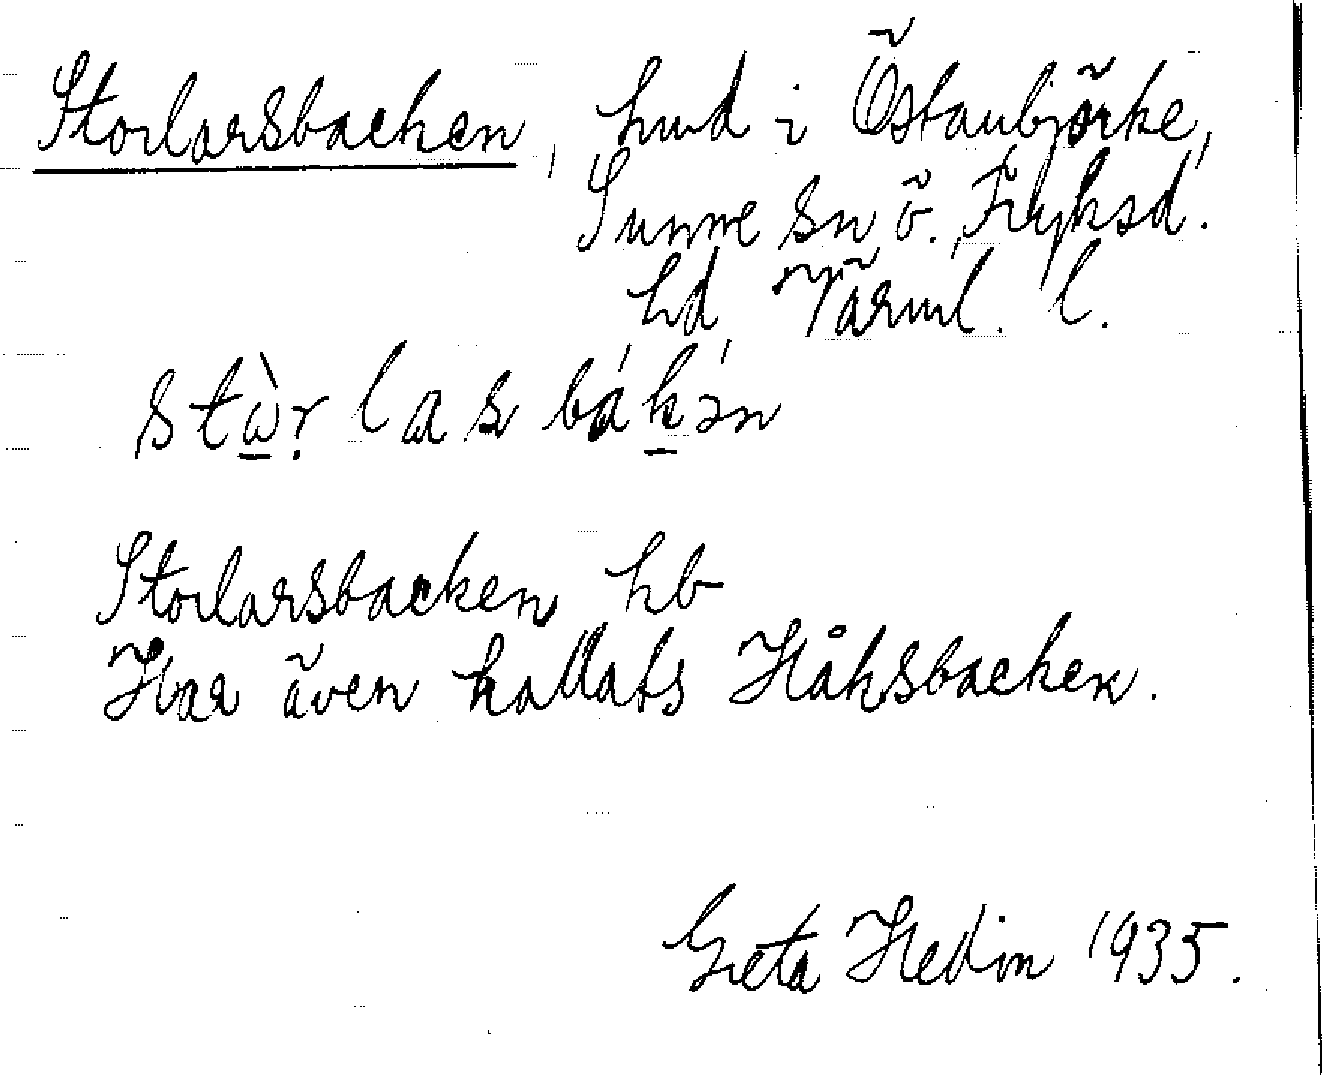 Storlarsbacken, hmd i Östanbjörke,
Sunne sn Ö. Fryksd.
hd Värml. l.
stὼṛlasbák̠ən
Storlarsbacken hb
Har även kallats Håksbacken.
Greta Hedin 1935.